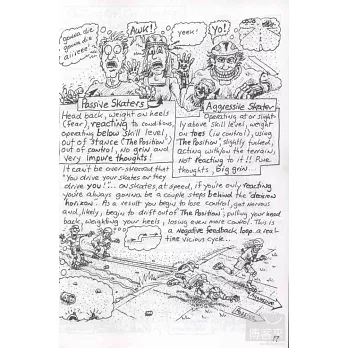 gonna die
gonna die
aiiieee!
AWK!
yeek!
Yo!
Passive Skaters
Head back, weight on heels
(fear), reacting to conditions,
operating below skill level,
out of stance ("The Position")
out of control, No grin and
very impure thoughts!
Aggressive Skater
Operating at or slight-
ly above skill level, weight
on toes (in control), using
"The Position", slightly tucked,
acting with/on the terrain,
not reacting to it!! Pure
thoughts, big grin.
It can't be over-stressed that
"You drive your skates or they
drive you!"... On skates, at speed, if you're only reacting
you're always gonna be a couple steps behind the "decision
horizon". As a result you begin to lose control, get nervous
and, likely, begin to drift out of The Position; pulling your head
back, weighting your heels, losing even more control. This is
a negative feedback loop, a real-
time vicious cycle...
17